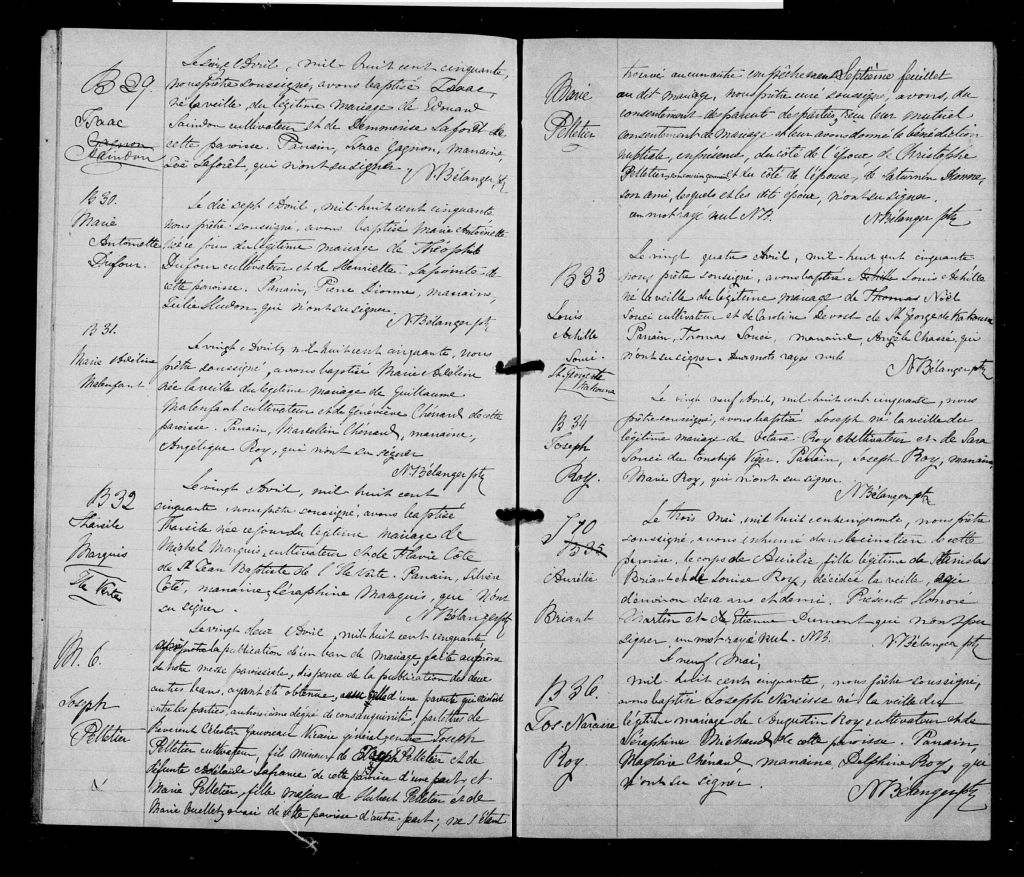 B 29.
Isaac
Gagnon
Saindon
Le seize Avril, mil-huit cent cinquante,
nous prêtre soussigné, avons baptisé Isaac,
né la veille, du légitime mariage de Edouard
Saindon cultivateur et de Demmerise Laforêt de
cette paroisse. Parrain, Isaac Gagnon, marraine,
Zoë Laforêt, qui n'ont su signer. N. Bélanger, ptr
B 30.
Marie
Antoinette
Dufour.
Le dix sept Avril, mil-huit cent cinquante
nous prêtre soussigné, avons baptisé Marie Antoinette
née ce jour du légitime mariage de Théophile
Dufour cultivateur et de Henriette Lapointe de
cette paroisse. Parrain, Pierre Dionne, marraine,
Julie Hudon, qui n'ont su signer.
N. Bélanger ptr
B 31.
Marie Adéline
Malenfant
Le vingt Avril, mil-huit cent cinquante, nous
prêtre soussigné, avons baptisé Marie Adéline
née la veille du légitime mariage de Guillaume
Malenfant cultivateur et de Geneviève Chénard de cette
paroisse. Parrain, Marcellin Chénard, marraine,
Angélique Roy, qui n'ont su signer
N. Bélanger ptr
B 32
Tharsile
Marquis
Ile Verte
Le vingt Avril, mil huit cent
cinquante nous prêtre soussigné, avons baptisé
Tharsile née ce jour du légitime mariage de
Michel Marquis, cultivateur et de Flavie Côté
de St Jean Baptiste de l'Ile Verte. Parrain,
Côté, marraine, Séraphine Marquis, qui n'ont
su signer. N. Bélanger ptr
M. 6.
Joseph
Pelletier
Le vingt deux Avril, mil-huit cent cinquante
après la publication d'un ban de mariage faite au prône
de notre messe paroissiale, dispense de la publication des deux
autres bans, ayant été obtenue, d'une parenté qui existait
entre les parties, au troisième degré de consanguinité par lettres de
Révérend Célestin Gauvreau Vicaire général entre Joseph
Pelletier cultivateur, fils mineur de Joseph Pelletier et de
défunte Adélaïde Lafrance de cette paroisse d'une part; et
Marie Pelletier, fille majeure de Hubert Pelletier et de
Marie Ouellet, aussi de cette paroisse d'autre part; ne s'étant
Marie
Pelletier
trouvé aucun autre empêchement Septième feuillet
au dit mariage, nous prêtre curé soussigné, avons, du
consentement des parents des parties, reçu leur mutuel
consentement de mariage et leur avons donné la bénédiction
nuptiale, en présence, du côté de l'époux de Christophe
Pelletier et du côté de l'épouse, de Saturnin Dionne,
son ami, lesquels et les dits époux, n'ont su signer.
un mot rayé nul N.B. N. Bélanger ptr
B 33
Louis
Achille
Souci
St George de
Kakouna
Le vingt quatre Avril, mil-huit cent cinquante
nous prêtre soussigné, avons baptisé Achille Louis Achille
né la veille du légitime mariage de Thomas Noël
Souci cultivateur et de Caroline Devost de St George de Kakouna
Parrain, Thomas Souci, marraine, Angèle Chassé, qui
n'ont su signer. deux mots rayés nuls
N. Bélanger ptr
B 34
Joseph
Roy.
Le vingt neuf Avril, mil-huit cent cinquante, nous
prêtre soussigné, avons baptisé Joseph né la veille du
légitime mariage de Octave Roy cultivateur et de Sara
Souci du township Viger. Parrain, Joseph Roy, marraine
Marie Roy, qui n'ont su signer.
N. Bélanger ptr
S 10
B 35
Aurélie
Briant
Le trois Mai, mil huit cent cinquante, nous prêtre
soussigné, avons inhumé dans le cimetière de cette
paroisse, le corps de Aurélie fille légitime de Stanislas
Briant et de Louise Roy, décédée la veille, âgée
d'environ deux ans et demi. Présents Honoré
Martin et de Etienne Dumont qui n'ont pu
signer. un mot rayé nul. N.B. N. Bélanger ptr
B 36.
Jos-Narcisse
Roy
Le neuf Mai,
mil-huit cent cinquante, nous prêtre soussigné,
avons baptisé Joseph Narcisse né la veille du
légitime mariage de Augustin Roy cultivateur et de
Séraphine Michaud de cette paroisse. Parrain,
Magloire Chénard marraine, Delphine Roy, qui
n'ont su signer.
N. Bélanger ptr